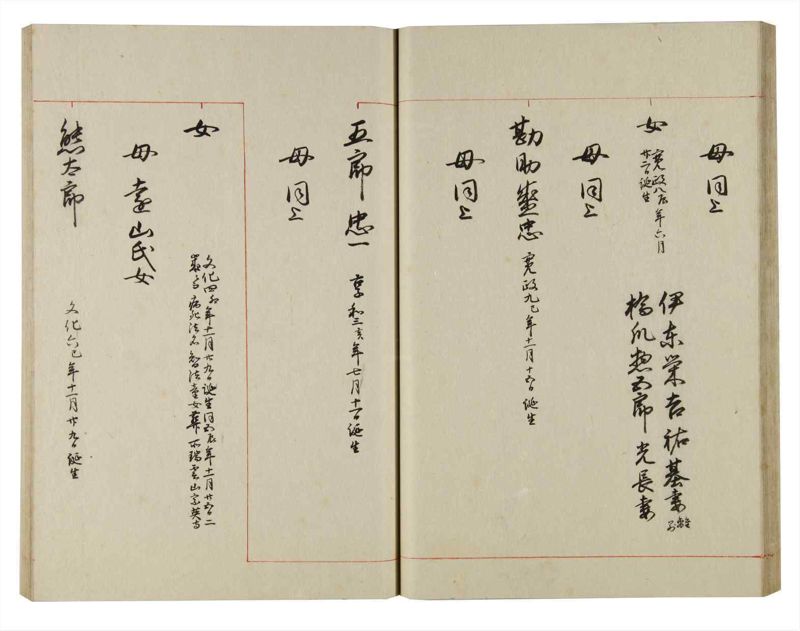 母同上
女 寛政八辰年六月
廿二日誕生
伊東栄吉祐基妻 離別
五郎光長妻
母同上
勘助 忠 寛政九巳年十一月十五日誕生
母同上
五郎忠一 享和三亥年七月十一日誕生
母同上
女 文化四卯年十一月廿九日誕生同五辰年十一月廿五日二
歳ニテ病死法名智法童女葬 瑞雲山宗英寺
母遠山氏女
熊太郎 文化六巳年十一月廿九日誕生